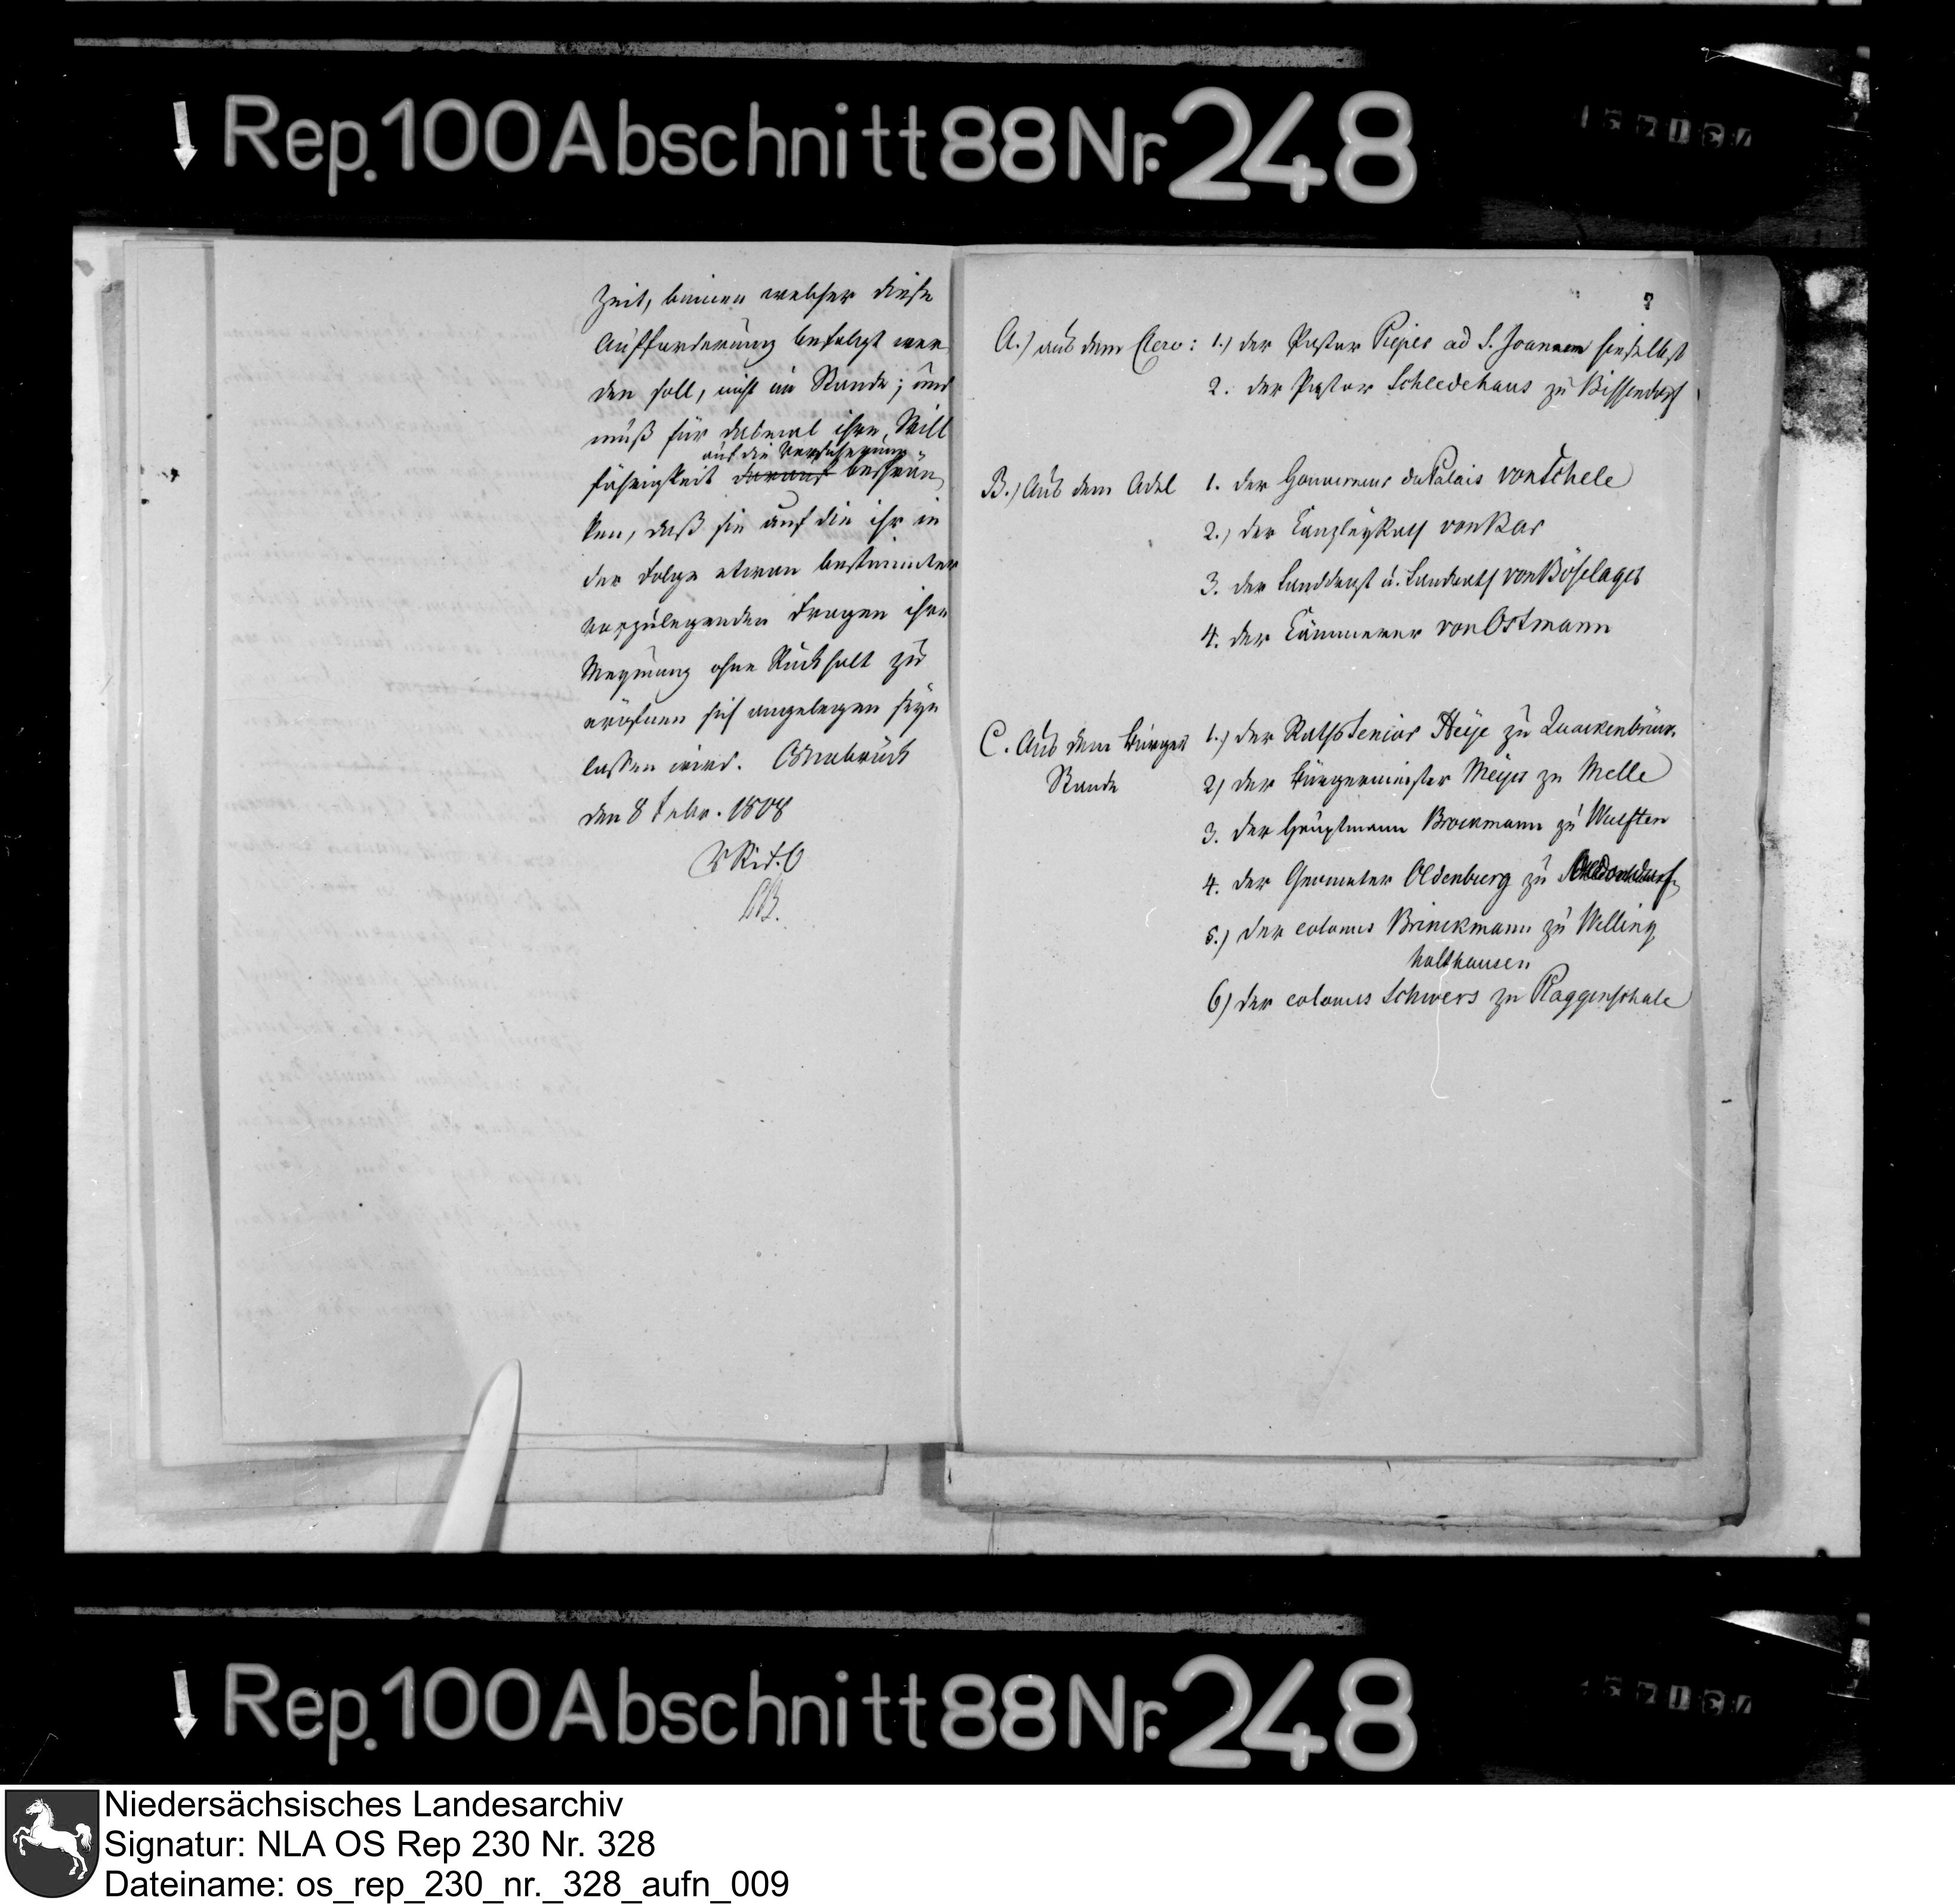 Rep. 100 Abschnitt 88 Nr. 248
Zeit, binnen welcher diese
Aufforderung befolgt wer
den soll, nicht im Stande; und
muß für dasmal ihre Will
auf die Versicherung
fährigkeit darauf beschrän
ken, daß sie auf die ihr in
der Folge etwan bestimmter
vorzulegenden Fragen ihre
Meynung ohne Rückhalt zu
eröfnen sich angelegen seyn
lassen wird. Osnabrück
den 8 Febr. 1808
A.) aus dem Clero: 1.) der Pastor Piepes ad S. Joannem hieselbst
2. der Pastor Schledehaus zu Bissendorf
B.) Aus dem Adel 1. der Gouverneur du Palais von Schele
2.) der Canzleyrath von Bar
3. der Landdrost u. Landrath von Böselager
4. der Cämmerer von Ostmann
C. Aus dem Bürger 1.) der Raths Senior Heye zu Quackenbrück
Stande 2) der Bürgermeister Meyer zu Melle
3. der Hauptmann Brockmann zu Wulften
4. der Geometer Oldenburg zu
5.) der colonus Brinckmann zu Welling
holthausen
6) der colonus Schwers zu Plaggenschale
Rep. 100 Abschnitt 88 Nr. 248
Niedersächsisches Landesarchiv
Signatur: NLA OS Rep 230 Nr. 328
Dateiname: os_rep_230_nr._328_aufn_009